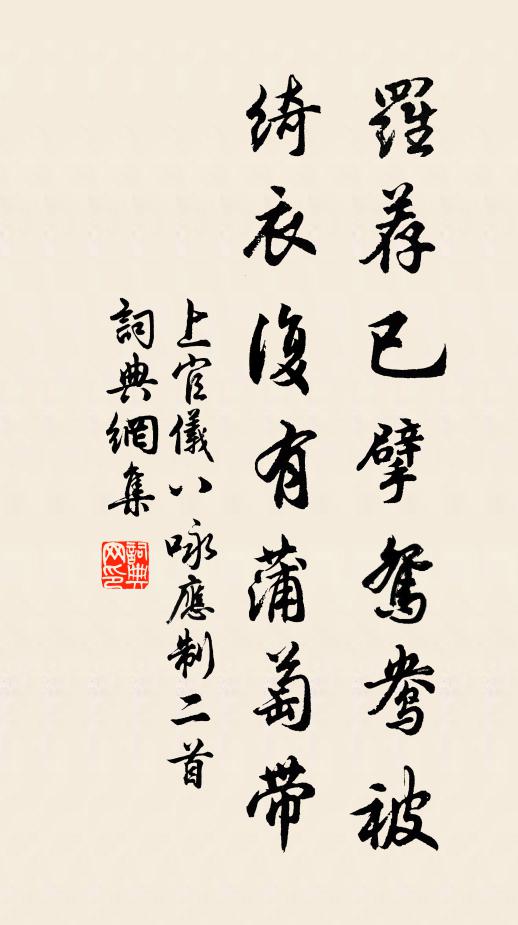 羅荐已擘鴛鴦被
綺衣復有蒲萄帶
上官儀八咏應制二首
詞典網集
詞典网印